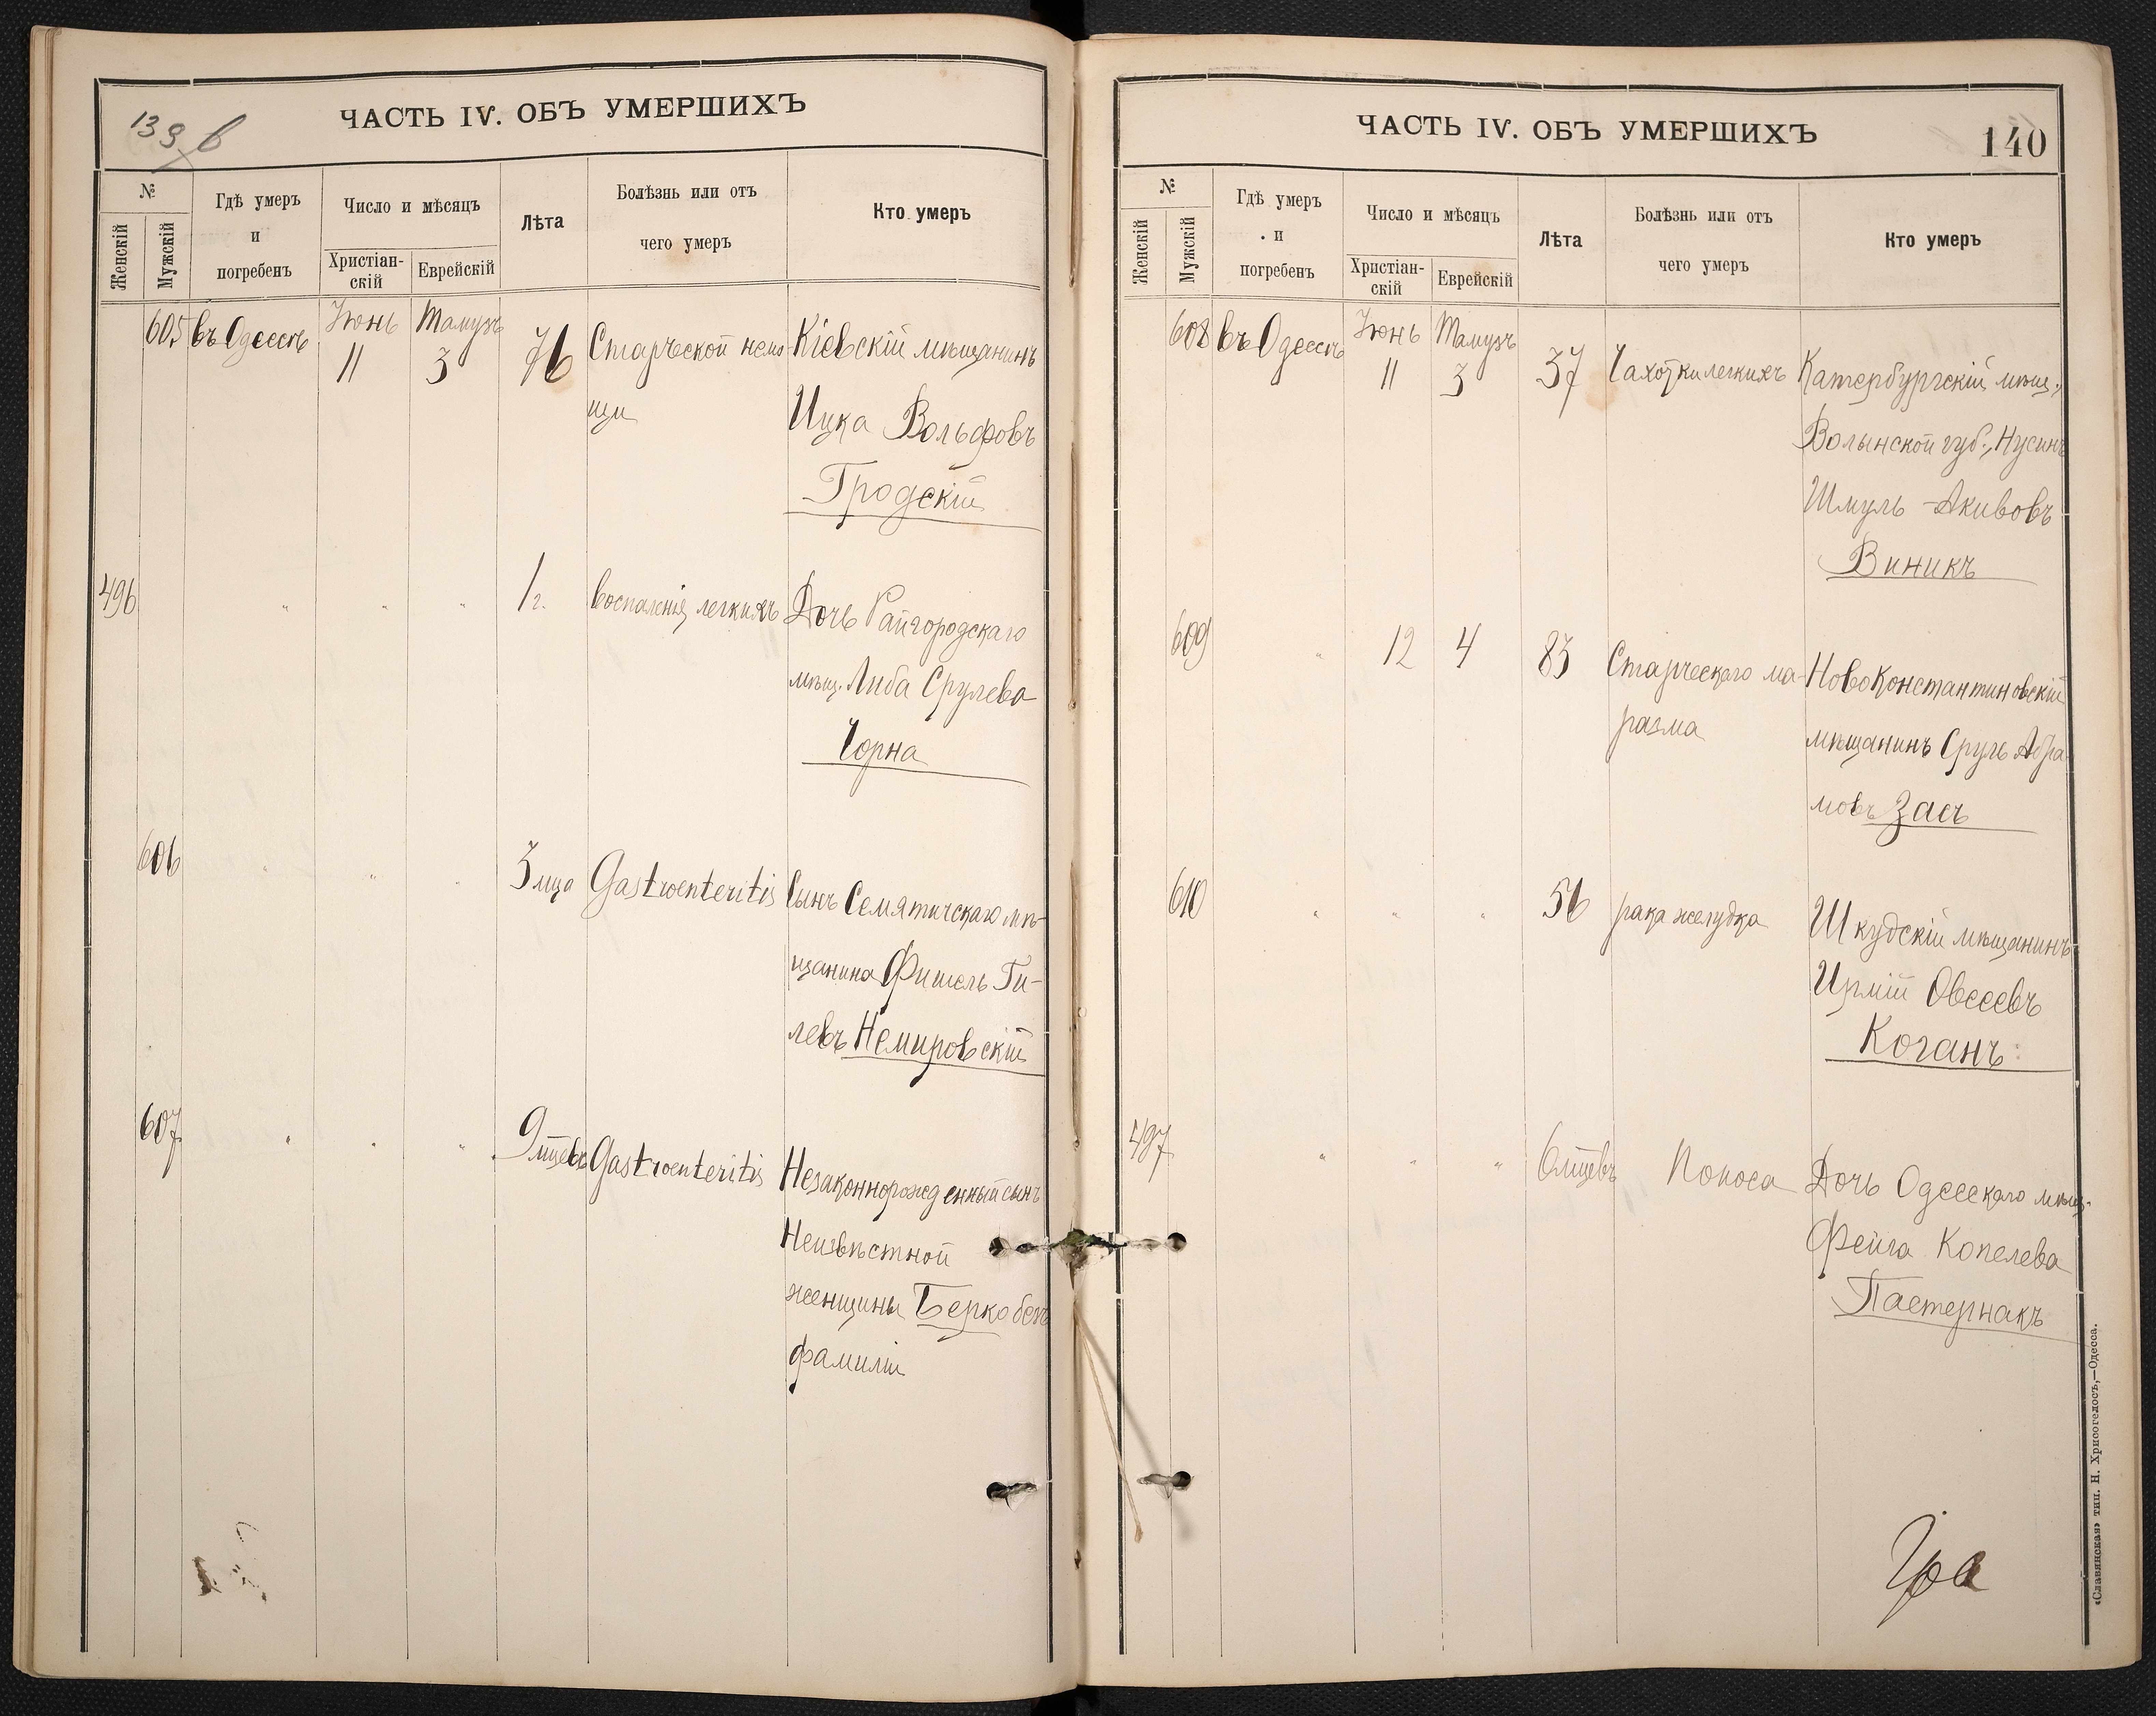 139 б
ЧАСТЬ IV. ОБЪ УМЕРШИХЪ
№
Женскій
Мужскій
Гдѣ умеръ
и
погребенъ
Число и мѣсяцъ
Христіан-
скій
Еврейскій
Лѣта
Болѣзнь или отъ
чего умеръ
Кто умеръ
605 въ Одессѣ Іюнь 11 Тамузъ 3 76 Старческой немо- Кіевскій мѣщанинъ
щи Ицка Вольфовъ
Гродскій
496 " " " 1 г. воспаленія легкихъ Дочь Райгородскаго
мѣщ. Либа Срулева
Чорна
606 " " " 3 мца Gastroenteritis Сынъ Семятичскаго мѣ-
щанина Фишель Ги-
левъ Немировскій
607 " " " 9 мцевъ Gastroenteritis Незаконнорожденный сынъ
Неизвѣстной
женщины Берко безъ
фамиліи
ЧАСТЬ IV. ОБЪ УМЕРШИХЪ
140
№
Женскій
Мужскій
Гдѣ умеръ
и
погребенъ
Число и мѣсяцъ
Христіан-
скій
Еврейскій
Лѣта
Болѣзнь или отъ
чего умеръ
Кто умеръ
608 въ Одессѣ Іюнь 11 Тамузъ 3 37 Чахотки легкихъ Катербургскій мѣщ.,
Волынской губ., Нусинъ
Шмуль-Акивовъ
Виникъ
609 " 12 4 83 Старческаго ма- Новоконстантиновскій
разма мѣщанинъ Сруль Абра
мовъ Засъ
610 " " " 56 рака желудка Шкудскій мѣщанинъ
Ирмій Овсеевъ
Коганъ
497 " " " 6 мцевъ Поноса Дочь Одесскаго мѣщ.
Фейга Копелева
Пастернакъ
«Славянская» тип. Н. Хрисогелосъ,—Одесса.